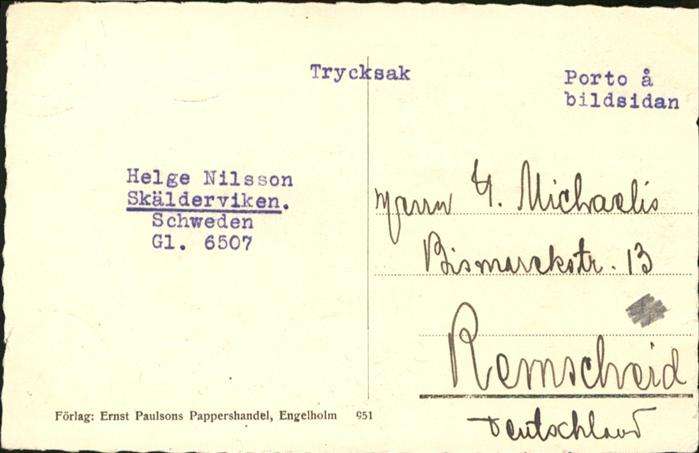 Trycksak
Porto å
bildsidan
Helge Nilsson
Skälderviken.
Schweden
Gl. 6507
Herrn H. Michaelis
Bismarckstr. 13
Remscheid
Deutschland
Förlag: Ernst Paulsons Pappershandel, Engelholm 951